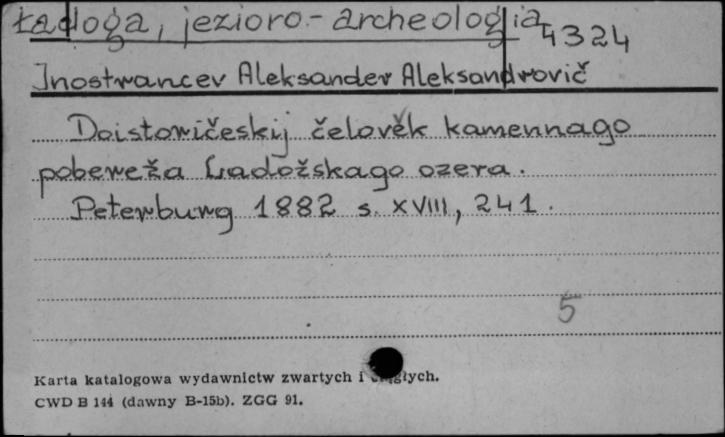 Ładoga, jezioro - archeologia
4324
Inostrancev Aleksander Aleksandrovič
Doistoričeskij čelověk kamennago
pobereža Ladožskago ozera.
Peterburg 1882 s. XVIII, 241.
5
Karta katalogowa wydawnictw zwartych i ciągłych.
CWD B 144 (dawny B-15b). ZGG 91.